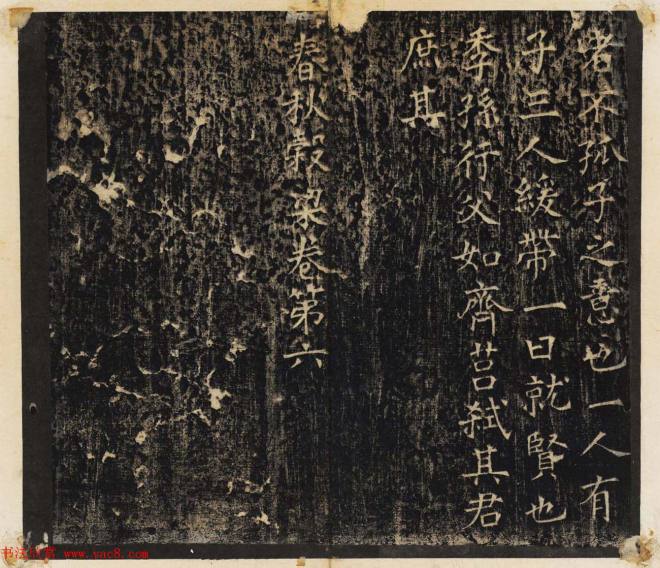 者不孤子之意也一人有
子三人緩帶一曰就賢也
季孫行父如齊莒弑其君
庶其
春秋穀梁卷第六
www.yac8.com